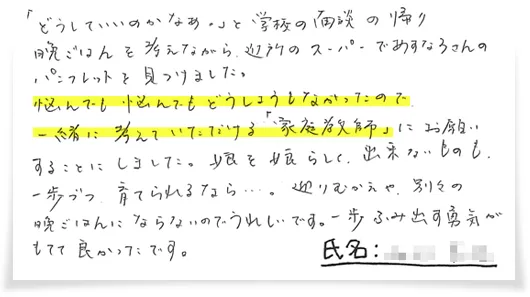 「どうしていいのかなぁ。」と学校の面談の帰り
晩ごはんを考えながら、近所のスーパーであすなろさんの
パンフレットを見つけました。
悩んでも悩んでもどうしようもなかったので、
一緒に考えていただける「家庭教師」にお願い
することにしました。娘を娘らしく、出来ないものも、
一歩づつ育てられるなら…。送りむかえや、別々の
晩ごはんにならないのでうれしいです。一歩ふみ出す勇気が
もてて良かったです。
氏名: